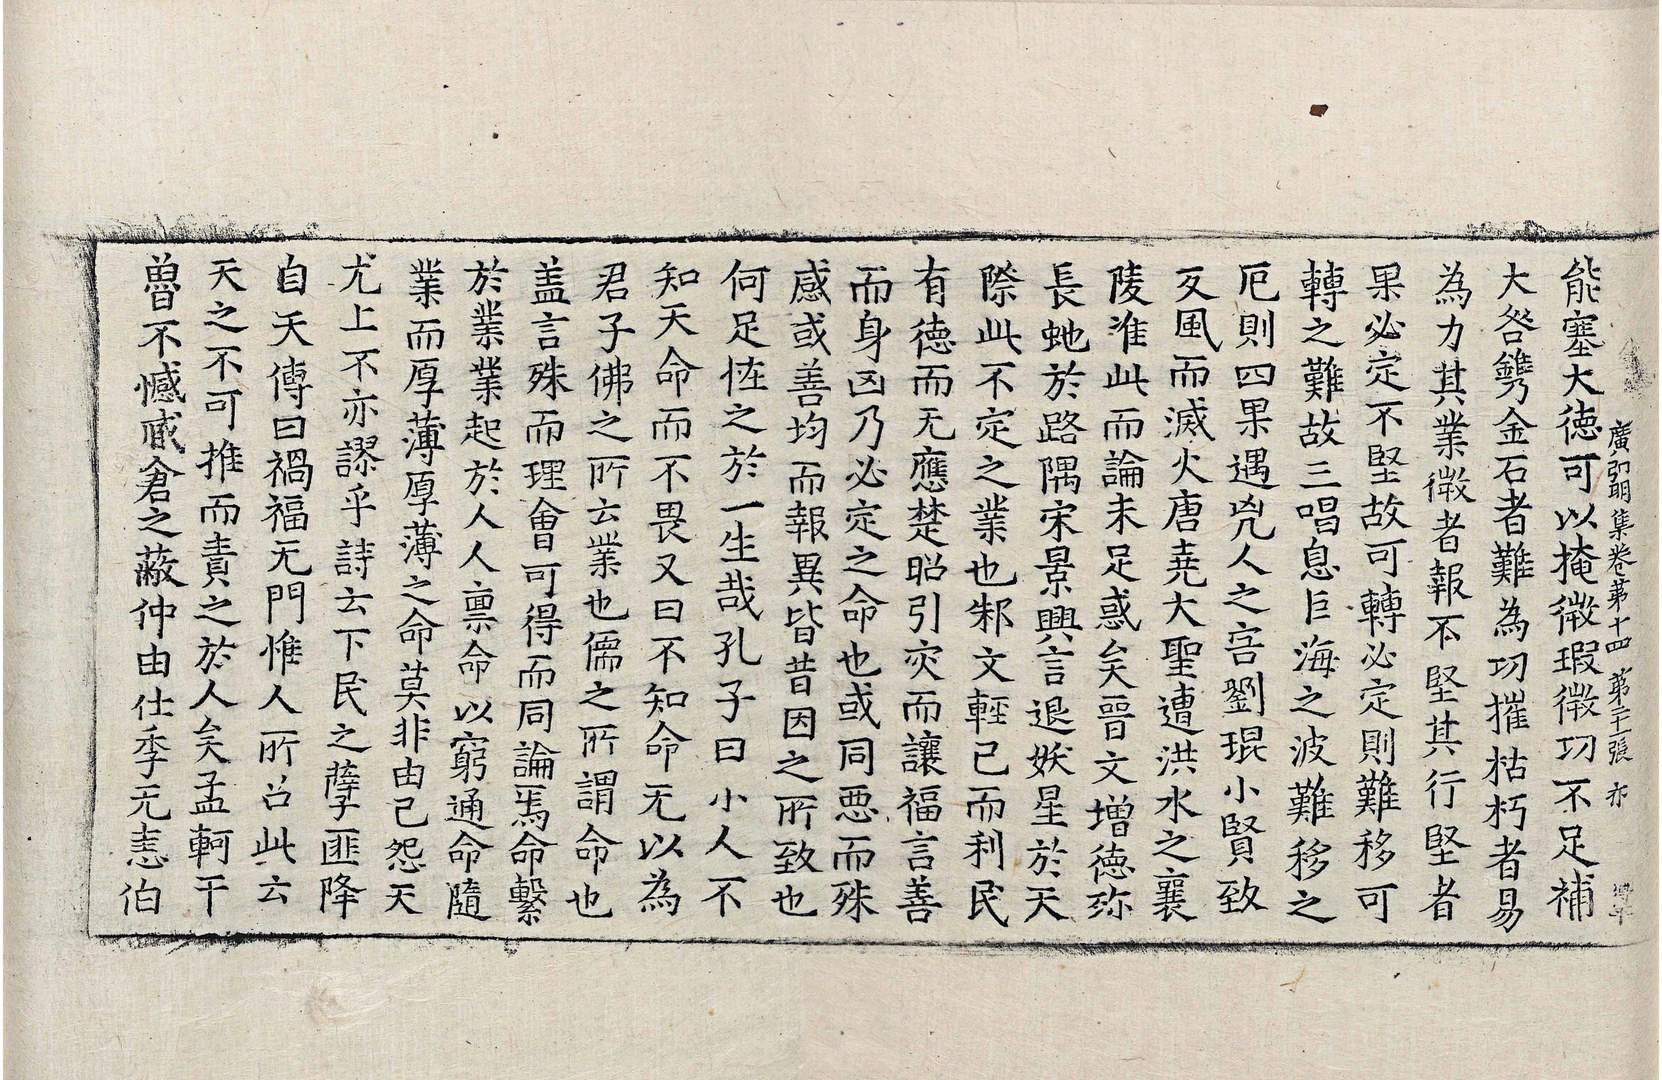 廣弘明集卷第十四 第二十一張 亦
能塞大德可以掩微瑕微功不足補
大咎鐫金石者難為功摧枯朽者易
為力其業微者報不堅其行堅者
果必定不堅故可轉必定則難移可
轉之難故三唱息巨海之波難移之
厄則四果遇兇人之害劉琨小賢致
反風而滅火唐堯大聖遭洪水之襄
陵准此而論未足惑矣晉文增德弥
長虵於路隅宋景興言退妖星於天
際此不定之業也邾文輕已而利民
有德而无應楚昭引灾而讓福言善
而身凶乃必定之命也或同惡而殊
感或善均而報異皆昔因之所致也
何足恠之於一生哉孔子曰小人不
知天命而不畏又曰不知命无以為
君子佛之所云業也儒之所謂命也
盖言殊而理會可得而同論焉命繫
於業業起於人人禀命以窮通命隨
業而厚薄厚薄之命莫非由己怨天
尤上不亦謬乎詩云下民之孽匪降
自天傳曰禍福无門惟人所召此云
天之不可推而責之於人矣孟軻干
魯不憾臧倉之蔽仲由仕季无恚伯